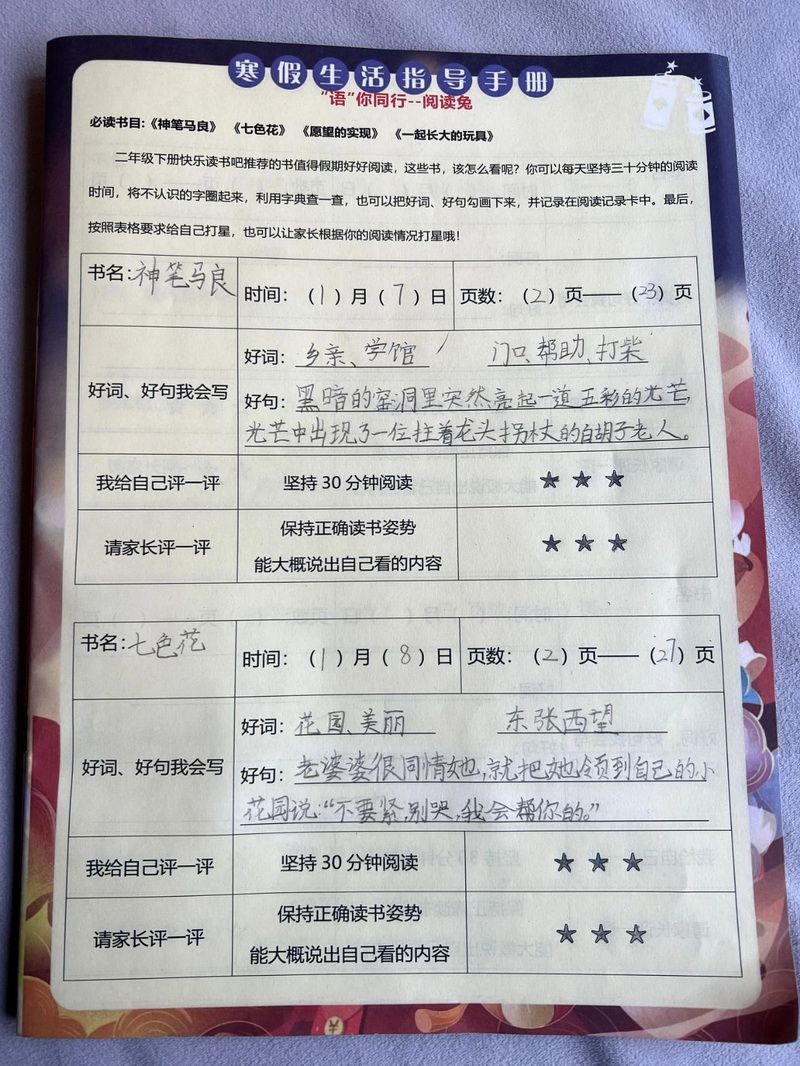 寒假生活指导手册
“语”你同行--阅读兔
必读书目:《神笔马良》 《七色花》 《愿望的实现》 《一起长大的玩具》
二年级下册快乐读书吧推荐的书值得假期好好阅读，这些书，该怎么看呢？你可以每天坚持三十分钟的阅读
时间，将不认识的字圈起来，利用字典查一查，也可以把好词、好句勾画下来，并记录在阅读记录卡中。最后，
按照表格要求给自己打星，也可以让家长根据你的阅读情况打星哦！
书名:神笔马良 时间：（1）月（7）日 页数：（2）页——（23）页
好词、好句我会写
好词：乡亲、学馆 门口、帮助、打柴
好句：黑暗的窑洞里突然亮起一道五彩的光芒,
光芒中出现了一位拄着龙头拐杖的白胡子老人。
我给自己评一评 坚持30分钟阅读 ★★★
请家长评一评 保持正确读书姿势
能大概说出自己看的内容 ★★★
书名:七色花 时间：（1）月（8）日 页数：（2）页——（27）页
好词、好句我会写
好词：花园、美丽 东张西望
好句：老婆婆很同情她,就把她领到自己的小
花园说:“不要紧,别哭,我会帮你的。”
我给自己评一评 坚持30分钟阅读 ★★★
请家长评一评 保持正确读书姿势
能大概说出自己看的内容 ★★★